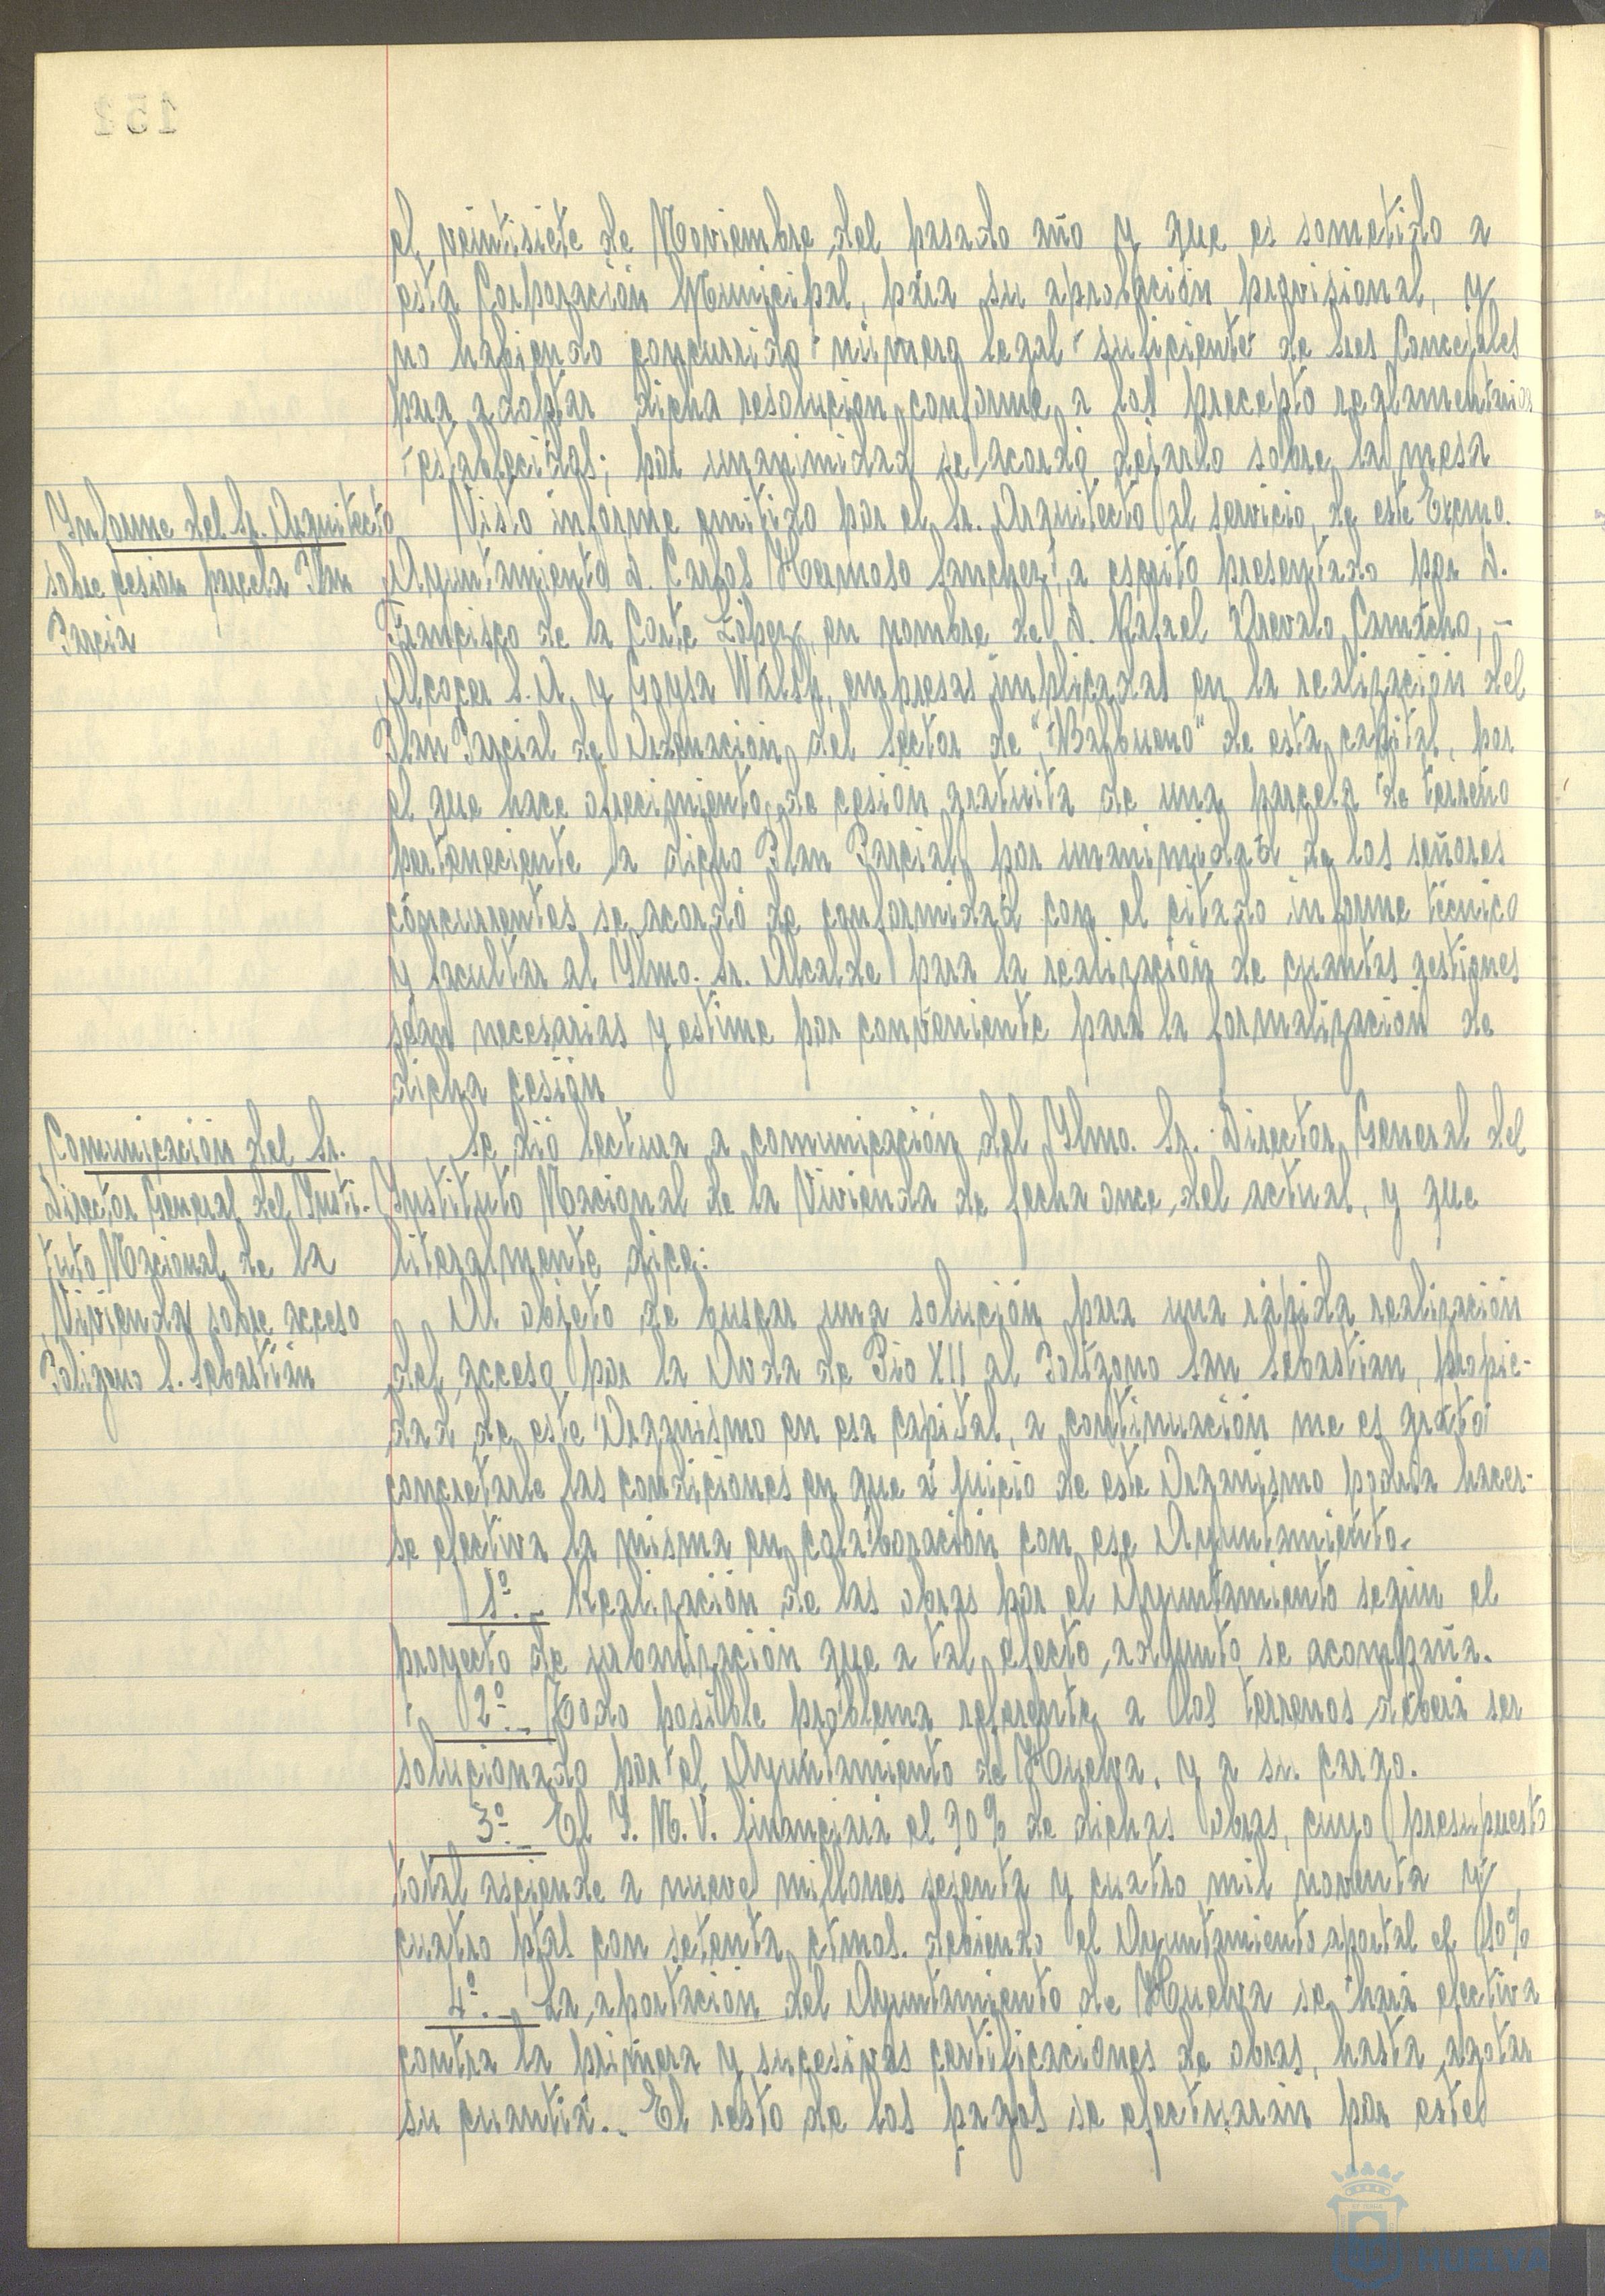 el veintisiete de Noviembre del pasado año y que es sometido a
esta Corporación Municipal, para su aprobación provisional, y
no habiendo concurrido número legal suficiente de sres Concejales
para adoptar dicha resolución conforme a los precepto reglamentarios
establecidos; por unanimidad se acordó dejarlo sobre la mesa
Informe del Sr. Arquitecto
sobre cesion parcela Plan
Parcia
Visto informe emitido por el Sr. Arquitecto al servicio de este Excmo.
Ayuntamiento D. Carlos Hermoso Sanchez, a escrito presentado por D.
Francisco de la Corte López, en nombre de D. Rafael Arevalo Camacho, -
Alcocer S.A. y Goysa Walsh, empresas implicadas en la realización del
Plan Parcial de Ordenación del Sector de "Balbueno" de esta capital, por
el que hace ofrecimiento de cesión gratuita de una parcela de terreno
perteneciente a dicho Plan Parcial, por unanimidad de los señores
concurrentes se acordó de conformidad con el citado informe técnico
y facultar al Ylmo. Sr. Alcalde para la realización de cuantas gestiones
sean necesarias y estime por conveniente para la formalización de
dicha cesión
Comunicación del Sr.
Director General del Insti-
tuto Nacional de la
Vivienda sobre acceso
Poligono S. Sebastián
Se dió lectura a comunicación del Ylmo. Sr. Director General del
Instituto Nacional de la Vivienda de fecha once del actual, y que
literalmente dice:
Al objeto de buscar una solución para una rápida realización
del acceso por la Avda de Pio XII al Polígono San Sebastian, propie-
dad de este Organismo en esa capital, a continuación me es grato
concretarle las condiciones en que a juicio de este Organismo podria hacer-
se efectiva la misma en colaboración con ese Ayuntamiento.
1º.- Realización de las obras por el Ayuntamiento según el
proyecto de urbanización que a tal efecto, adjunto se acompaña.
2º.- Todo posible problema referente a los terrenos deberá ser
solucionado por el Ayuntamiento de Huelva, y a su cargo.
3º.- El I.N.V. financiará el 90% de dichas obras, cuyo presupuesto
total asciende a nueve millones sesenta y cuatro mil noventa y
cuatro ptas con setenta ctmos. debiendo el Ayuntamiento aportal el 10%
4º.- La aportación del Ayuntamiento de Huelva se hará efectiva
contra la primera y sucesivas certificaciones de obras, hasta agotar
su cuantía.- El resto de los pagos se efectuarán por este
HUELVA